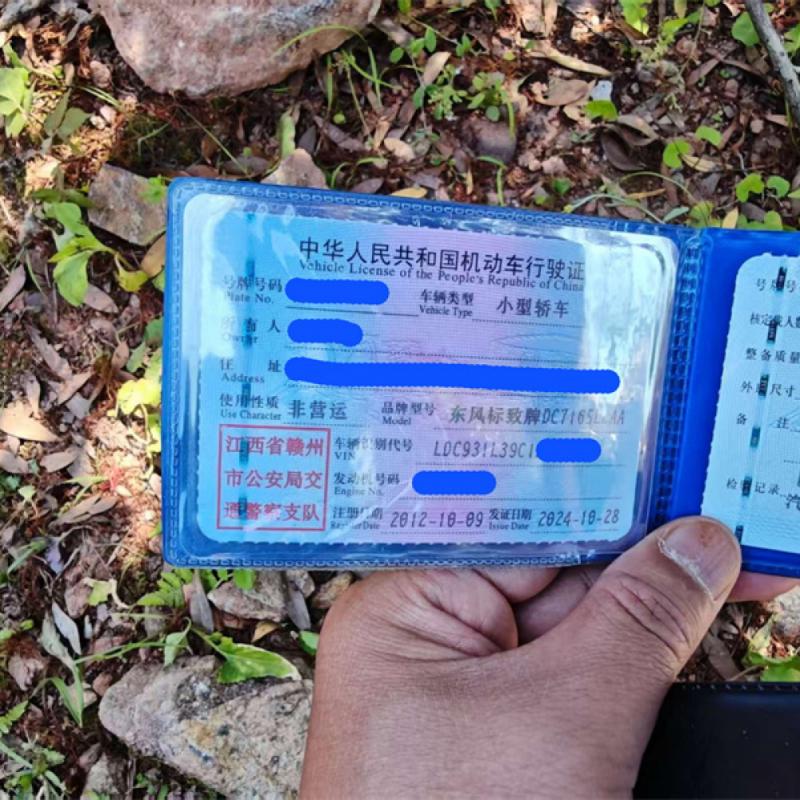 中华人民共和国机动车行驶证
Vehicle License of the People's Republic of China
号牌号码
Plate No.
车辆类型 小型轿车
Vehicle Type
所有人
Owner
住址
Address
使用性质 非营运
Use Character
品牌型号 东风标致牌DC7165
Model
江西省赣州
市公安局交
通警察支队
车辆识别代号 LDC931L39C1
VIN
发动机号码
Engine No.
注册日期 2012-10-09
Register Date
发证日期 2024-10-28
Issue Date
号牌号
核定载人数
整备质量
外廓尺寸
备注
检验记录